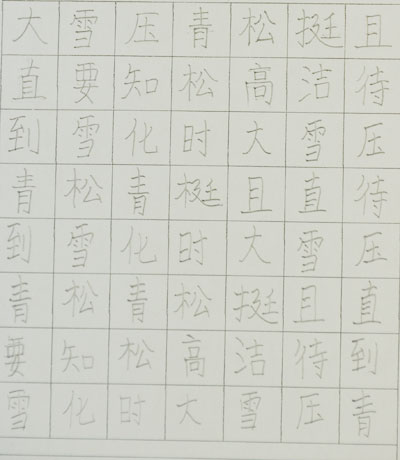 大雪压青松挺且
直要知松高洁待
到雪化时大雪压
青松青挺且直待
到雪化时大雪压
青松青松挺且直
要知松高洁待到
雪化时大雪压青